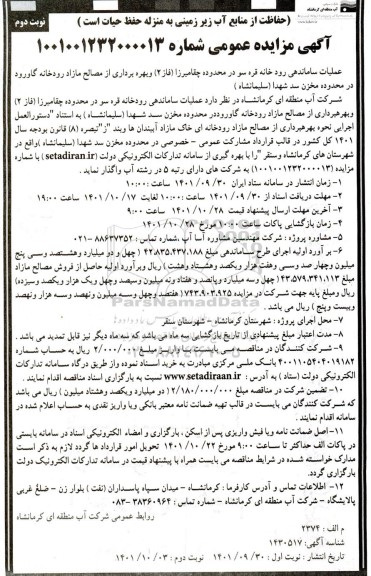 (حفاظت از منابع آب زیر زمینی به منزله حفظ حیات است )
نوبت دوم
آگهی مزایده عمومی شماره ۱۰۰۱۰۰۱۲۳۲۰۰۰۰۱۳
عملیات ساماندهی رود خانه قره سو در محدوده چقامیرزا (فاز۲) وبهره برداری از مصالح مازاد رودخانه گاورود
در محدوده مخزن سد شهدا (سلیمانشاه )
شرکت آب منطقه ای کرمانشاه در نظر دارد عملیات ساماندهی رودخانه قره سو در محدوده چقامیرزا (فاز ۲)
وبهرهبرداری از مصالح مازاد رودخانه گاوروددر محدوده مخزن سد شهدا (سلیمانشاه ) به استناد "دستورالعمل
اجرایی نحوه بهرهبرداری از مصالح مازاد رودخانه ای خاک مازاد آببندان ها وبند "ز"تبصره (۸) قانون بودجه سال
۱۴۰۱ کل کشور در قالب قرارداد مشارکت عمومی - خصوصی در محدوده مخزن سد شهدا (سلیمانشاه )واقع در
شهرستان های کرمانشاه وسنقر "را با بهره گیری از سامانه تدارکات الکترونیکی دولت (setadiran.ir) با شماره
مزایده (۱۰۰۱۰۰۱۲۳۲۰۰۰۰۱۳) به شرکت های دارای رتبه ۵ در رشته آب واگذار نماید .
۱- زمان انتشار در سامانه ستاد ایران ۱۴۰۱/۰۹/۳۰ ساعت ۱۰:۰۰
۲- مهلت دریافت اسناد از ۱۴۰۱/۰۹/۳۰ ساعت ۱۰:۰۰ لغایت ۱۴۰۱/۱۰/۱۷ ساعت ۱۹:۰۰
۳- آخرین مهلت ارسال پیشنهاد قیمت ۱۴۰۱/۱۰/۲۸ ساعت ۹:۰۰
۴- زمان بازگشایی پاکات ساعت ۱۰:۰۰ مورخ ۱۴۰۱/۱۰/۲۸
۵- مشاوره پروژه : شرکت مهندسین مشاور آسا آب ،شماره تماس : ۸۸۶۳۷۳۵۲-۰۲۱
۶- بر آورد اولیه اجرای طرح ساماندهی مبلغ ۴۲,۸۳۵,۴۳۷,۱۸۸ ( چهل و دو میلیارد وهشتصد وسی پنج
میلیون وچهار صد وسی وهفت هزار ویکصد وهشتاد وهشت ) ریال وبرآورد اولیه حاصل از فروش مصالح مازاد
۴۳,۵۷۹,۳۴۱,۱۱۳ (چهل وسه میلیارد وپانصد و هفتاد ونه میلیون وسیصد وچهل ویک هزار ویکصد وسیزده)
ریال ومبلغ پایه جهت شرکت در مزایده ۷۴۳,۹۰۳,۹۲۵( هفتصد وچهل وسه میلیون ونهصد وسه هزار ونهصد
وبیست وپنج ) ریال می باشد .
۷- محل اجرای پروژه : شهرستان کرمانشاه - شهرستان سنقر
۸- مدت اعتبار مبلغ پیشنهادی از تاریخ بازگشایی سه ماه می باشد که سه ماه دیگر نیز قابل تمدید می باشد .
۹- شرکت کنندگان در مناقصه می بایست با واریز مبلغ ۲/۰۰۰/۰۰۰ ریال به حساب شماره
۴۰۰۱۱۰۵۴۰۴۰۱۹۱۸۲ بانک ملی مرکزی مبادرت به خرید اسناد نموده واز طریق درگاه سامانه تدارکات
الکترونیکی دولت (ستاد ) به آدرس : www.setadiraan.ir نسبت به بارگزاری اسناد مناقصه اقدام نمایند .
۱۰- تضمین شرکت در مناقصه مبلغ ۲/۱۸۰/۰۰۰/۰۰۰ (دو میلیارد ویکصد وهشتاد میلیون ) ریال می باشد
که شرکت کنندگان می بایست در قالب تهیه ضمانت نامه معتبر بانکی ویا واریز نقدی به حساب اعلام شده در
سامانه اقدام نمایند .
۱۱-اصل ضمانت نامه ویا فیش واریزی پس از اسکن ، بارگزاری و امضاء الکترونیکی اسناد در سامانه بایستی
در پاکات الف حداکثر تا ساعت ۹:۰۰ مورخ ۱۴۰۱/۱۰/۲۲ تحویل امور قرارداد ها گردد لازم به ذکر است
مدارک خواسته شده در شرایط مناقصه می بایست همراه با پیشنهاد قیمت در سامانه تدارکات الکترونیک دولت
بارگزاری گردد.
۱۲- اطلاعات تماس و آدرس کارفرما : کرمانشاه - میدان سپاه پاسداران (نفت ) بلوار زن - ضلع غربی
پالایشگاه - شرکت آب منطقه ای کرمانشاه - شماره تماس : ۳۸۳۶۰۹۶۴ -۰۸۳
روابط عمومی شرکت آب منطقه ای کرمانشاه
م الف : ۲۳۷۴
شناسه آگهی: ۱۴۳۰۵۱۷
تاریخ انتشار : نوبت اول : ۱۴۰۱/۰۹/۳۰ نوبت دوم : ۱۴۰۱/۱۰/۰۳